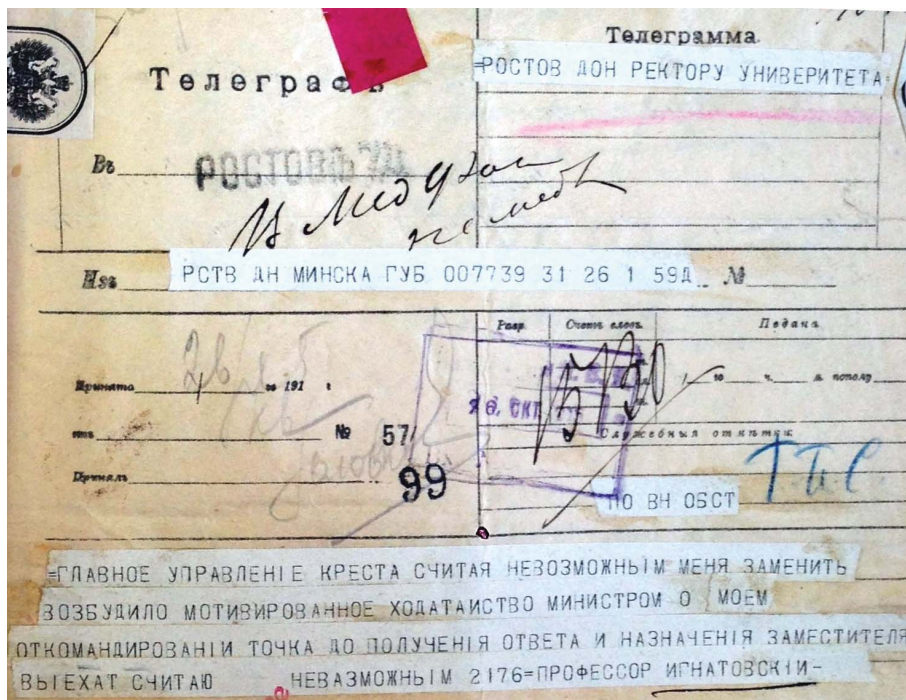 Телеграмма
Телеграфъ
=РОСТОВ ДОН РЕКТОРУ УНИВЕРИТЕТА=
Въ РОСТОВЪ
Изъ РСТВ ДН МИНСКА ГУБ 007739 31 26 1 59Д №
Разр. Счетъ словъ. Подача
Принята го 191 г. го ч. м. по полу
отъ № 57/
Служебныя отмѣтки:
Принялъ 99
ПО ВН ОБСТ
=ГЛАВНОЕ УПРАВЛЕНІЕ КРЕСТА СЧИТАЯ НЕВОЗМОЖНЫМ МЕНЯ ЗАМЕНИТЬ
ВОЗБУДИЛО МОТИВИРОВАННОЕ ХОДАТАИСТВО МИНИСТРОМ О МОЕМ
ОТКОМАНДИРОВАНІИ ТОЧКА ДО ПОЛУЧЕНІЯ ОТВЕТА И НАЗНАЧЕНІЯ ЗАМЕСТИТЕЛЯ
ВЫЕХАТ СЧИТАЮ НЕВАЗМОЖНЫМ 2176=ПРОФЕССОР ИГНАТОВСКІИ-